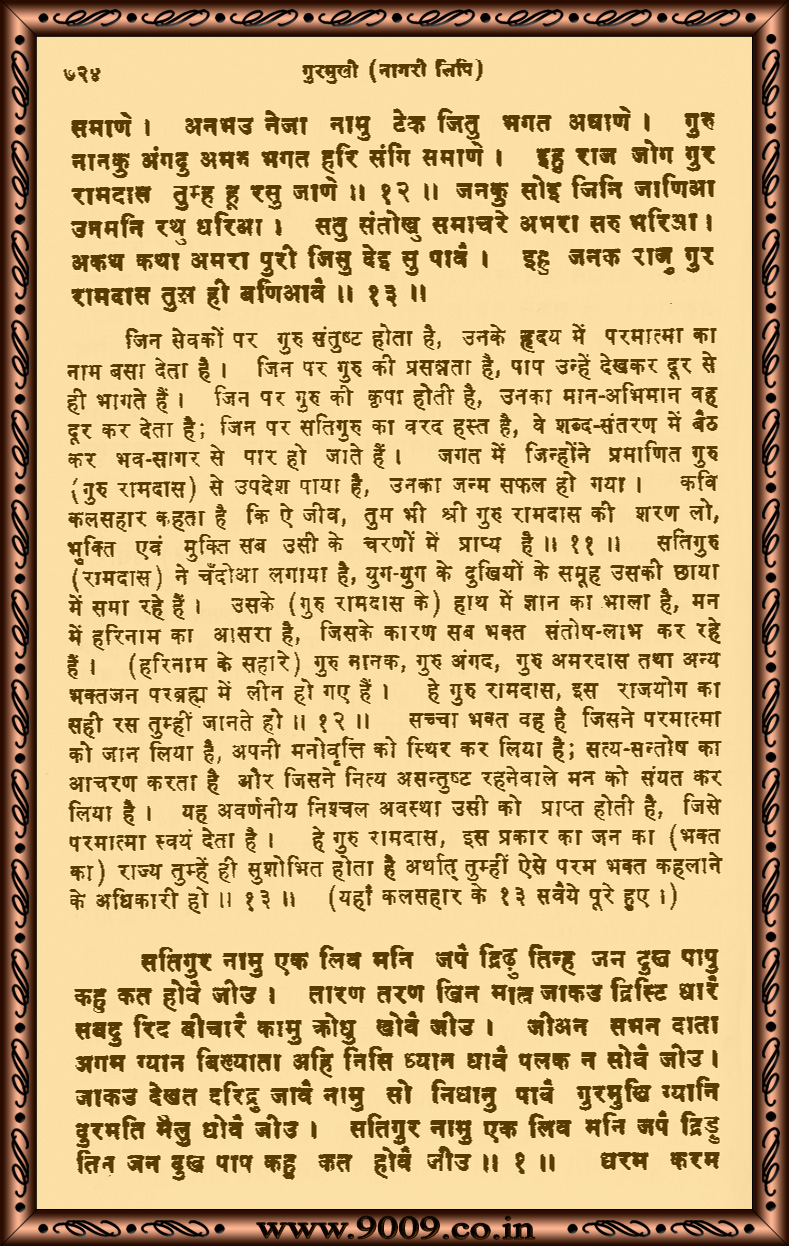 ७२४
गुरमुखी (नागरी लिपि)
समाणे । अनभउ नेजा नामु टेक जितु भगत अघाणे । गुरु
नानकु अंगदु अमरु भगत हरि संगि समाणे । इहु राज जोग गुर
रामदास तुम्ह हू रसु जाणे ॥ १२ ॥ जनकु सोइ जिनि जाणिआ
उनमनि रथु धरिआ । सतु संतोखु समाचरे अभरा सरु भरिआ ।
अकथ कथा अमरा पुरी जिसु देइ सु पावै । इहु जनक राजु गुर
रामदास तुझ ही बणिआवै ॥ १३ ॥
जिन सेवकों पर गुरु संतुष्ट होता है, उनके हृदय में परमात्मा का
नाम बसा देता है । जिन पर गुरु की प्रसन्नता है, पाप उन्हें देखकर दूर से
ही भागते हैं । जिन पर गुरु की कृपा होती है, उनका मान-अभिमान वह
दूर कर देता है; जिन पर सतिगुरु का वरद हस्त है, वे शब्द-संतरण में बैठ
कर भव-सागर से पार हो जाते हैं । जगत में जिन्होंने प्रमाणित गुरु
(गुरु रामदास) से उपदेश पाया है, उनका जन्म सफल हो गया । कवि
कलसहार कहता है कि ऐ जीव, तुम भी श्री गुरु रामदास की शरण लो,
भुक्ति एवं मुक्ति सब उसी के चरणों में प्राप्य है ॥ ११ ॥ सतिगुरु
(रामदास) ने चँदोआ लगाया है, युग-युग के दुखियों के समूह उसकी छाया
में समा रहे हैं । उसके (गुरु रामदास के) हाथ में ज्ञान का भाला है, मन
में हरिनाम का आसरा है, जिसके कारण सब भक्त संतोष-लाभ कर रहे
हैं । (हरिनाम के सहारे) गुरु नानक, गुरु अंगद, गुरु अमरदास तथा अन्य
भक्तजन परब्रह्म में लीन हो गए हैं । हे गुरु रामदास, इस राजयोग का
सही रस तुम्हीं जानते हो ॥ १२ ॥ सच्चा भक्त वह है जिसने परमात्मा
को जान लिया है, अपनी मनोवृत्ति को स्थिर कर लिया है; सत्य-सन्तोष का
आचरण करता है और जिसने नित्य असन्तुष्ट रहनेवाले मन को संयत कर
लिया है । यह अवर्णनीय निश्चल अवस्था उसी को प्राप्त होती है, जिसे
परमात्मा स्वयं देता है । हे गुरु रामदास, इस प्रकार का जन का (भक्त
का) राज्य तुम्हें ही सुशोभित होता है अर्थात् तुम्हीं ऐसे परम भक्त कहलाने
के अधिकारी हो ॥ १३ ॥ (यहाँ कलसहार के १३ सवैये पूरे हुए ।)
सतिगुर नामु एक लिव मनि जपै द्रिढ़ु तिन्ह जन दुख पापु
कहु कत होवै जीउ । तारण तरण खिन मात्र जाकउ द्रिस्टि धारै
सबदु रिद बीचारै कामु क्रोधु खोवै जीउ । जीअन सभन दाता
अगम ग्यान बिख्याता अहि निसि ध्यान धावै पलक न सोवै जीउ ।
जाकउ देखत दरिद्रु जावै नामु सो निधानु पावै गुरमुखि ग्यानि
दुरमति मैलु धोवै जीउ । सतिगुर नामु एक लिव मनि जपै द्रिड़ु
तिन जन दुख पाप कहु कत होवै जीउ ॥ १ ॥ धरम करम
www.9009.co.in